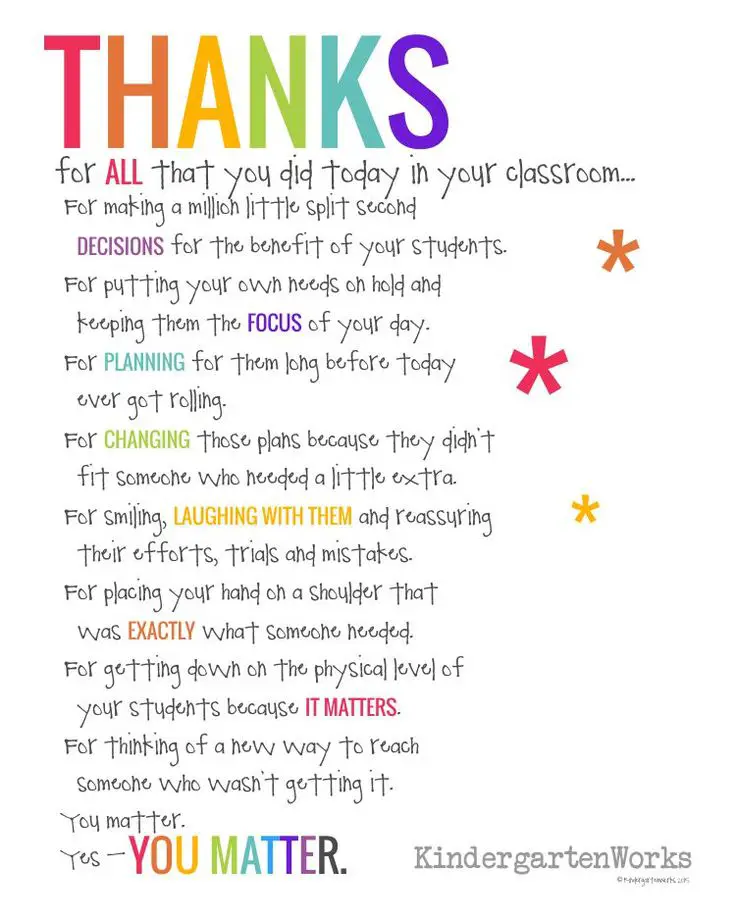 THANKS
for ALL that you did today in your classroom...
For making a million little split second
DECISIONS for the benefit of your students.
For putting your own needs on hold and
keeping them the FOCUS of your day.
For PLANNING for them long before today
ever got rolling.
For CHANGING those plans because they didn't
fit someone who needed a little extra.
For smiling, LAUGHING WITH THEM and reassuring
their efforts, trials and mistakes.
For placing your hand on a shoulder that
was EXACTLY what someone needed.
For getting down on the physical level of
your students because IT MATTERS.
For thinking of a new way to reach
someone who wasn't getting it.
You matter.
Yes – YOU MATTER.
KindergartenWorks
© KindergartenWorks 2015